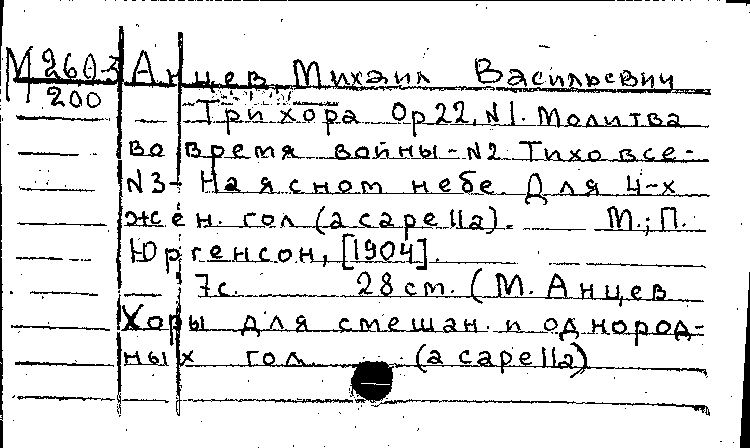 М 260-3 Анцев, Михаил Васильевич
200
Три хора Ор 22, N1. Молитва
во время войны - N2 Тихо все -
N3 - На ясном небе. Для 4-х
жен. гол (a capella). М.; П.
Юргенсон, [1904].
7с. 28 cm. (М. Анцев
Хоры для смешан. и однород-
ных гол. (a capella)